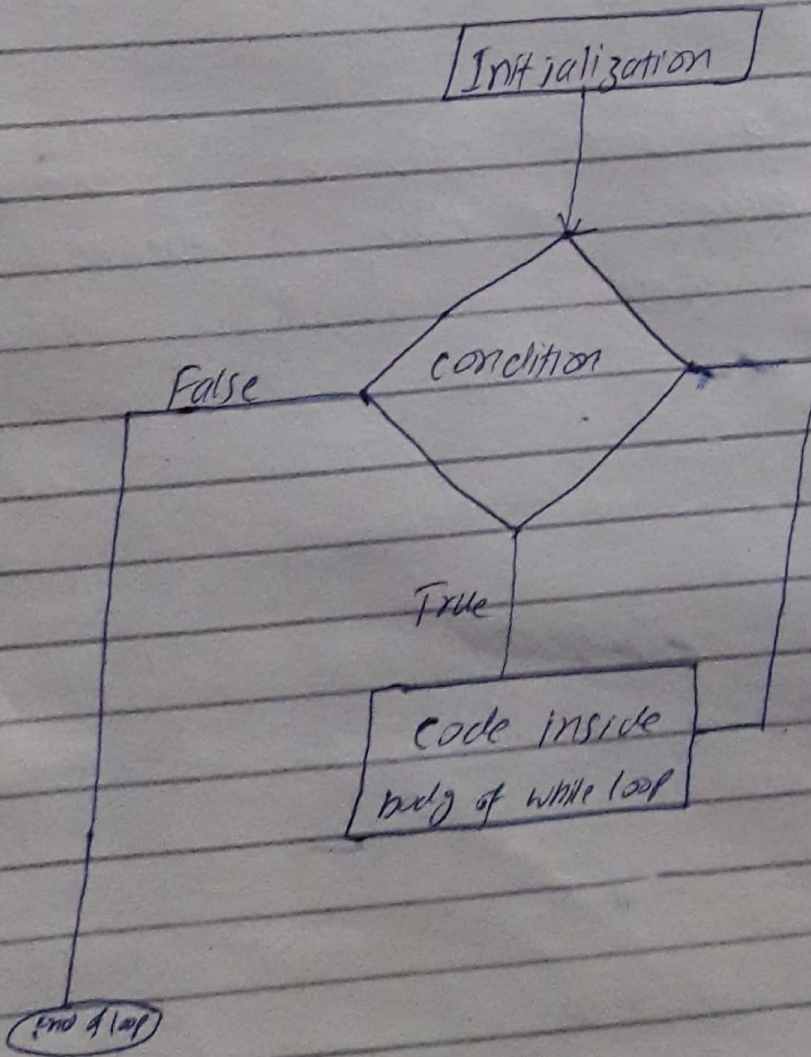 Initialization
condition
False
True
code inside
body of while loop
End of loop